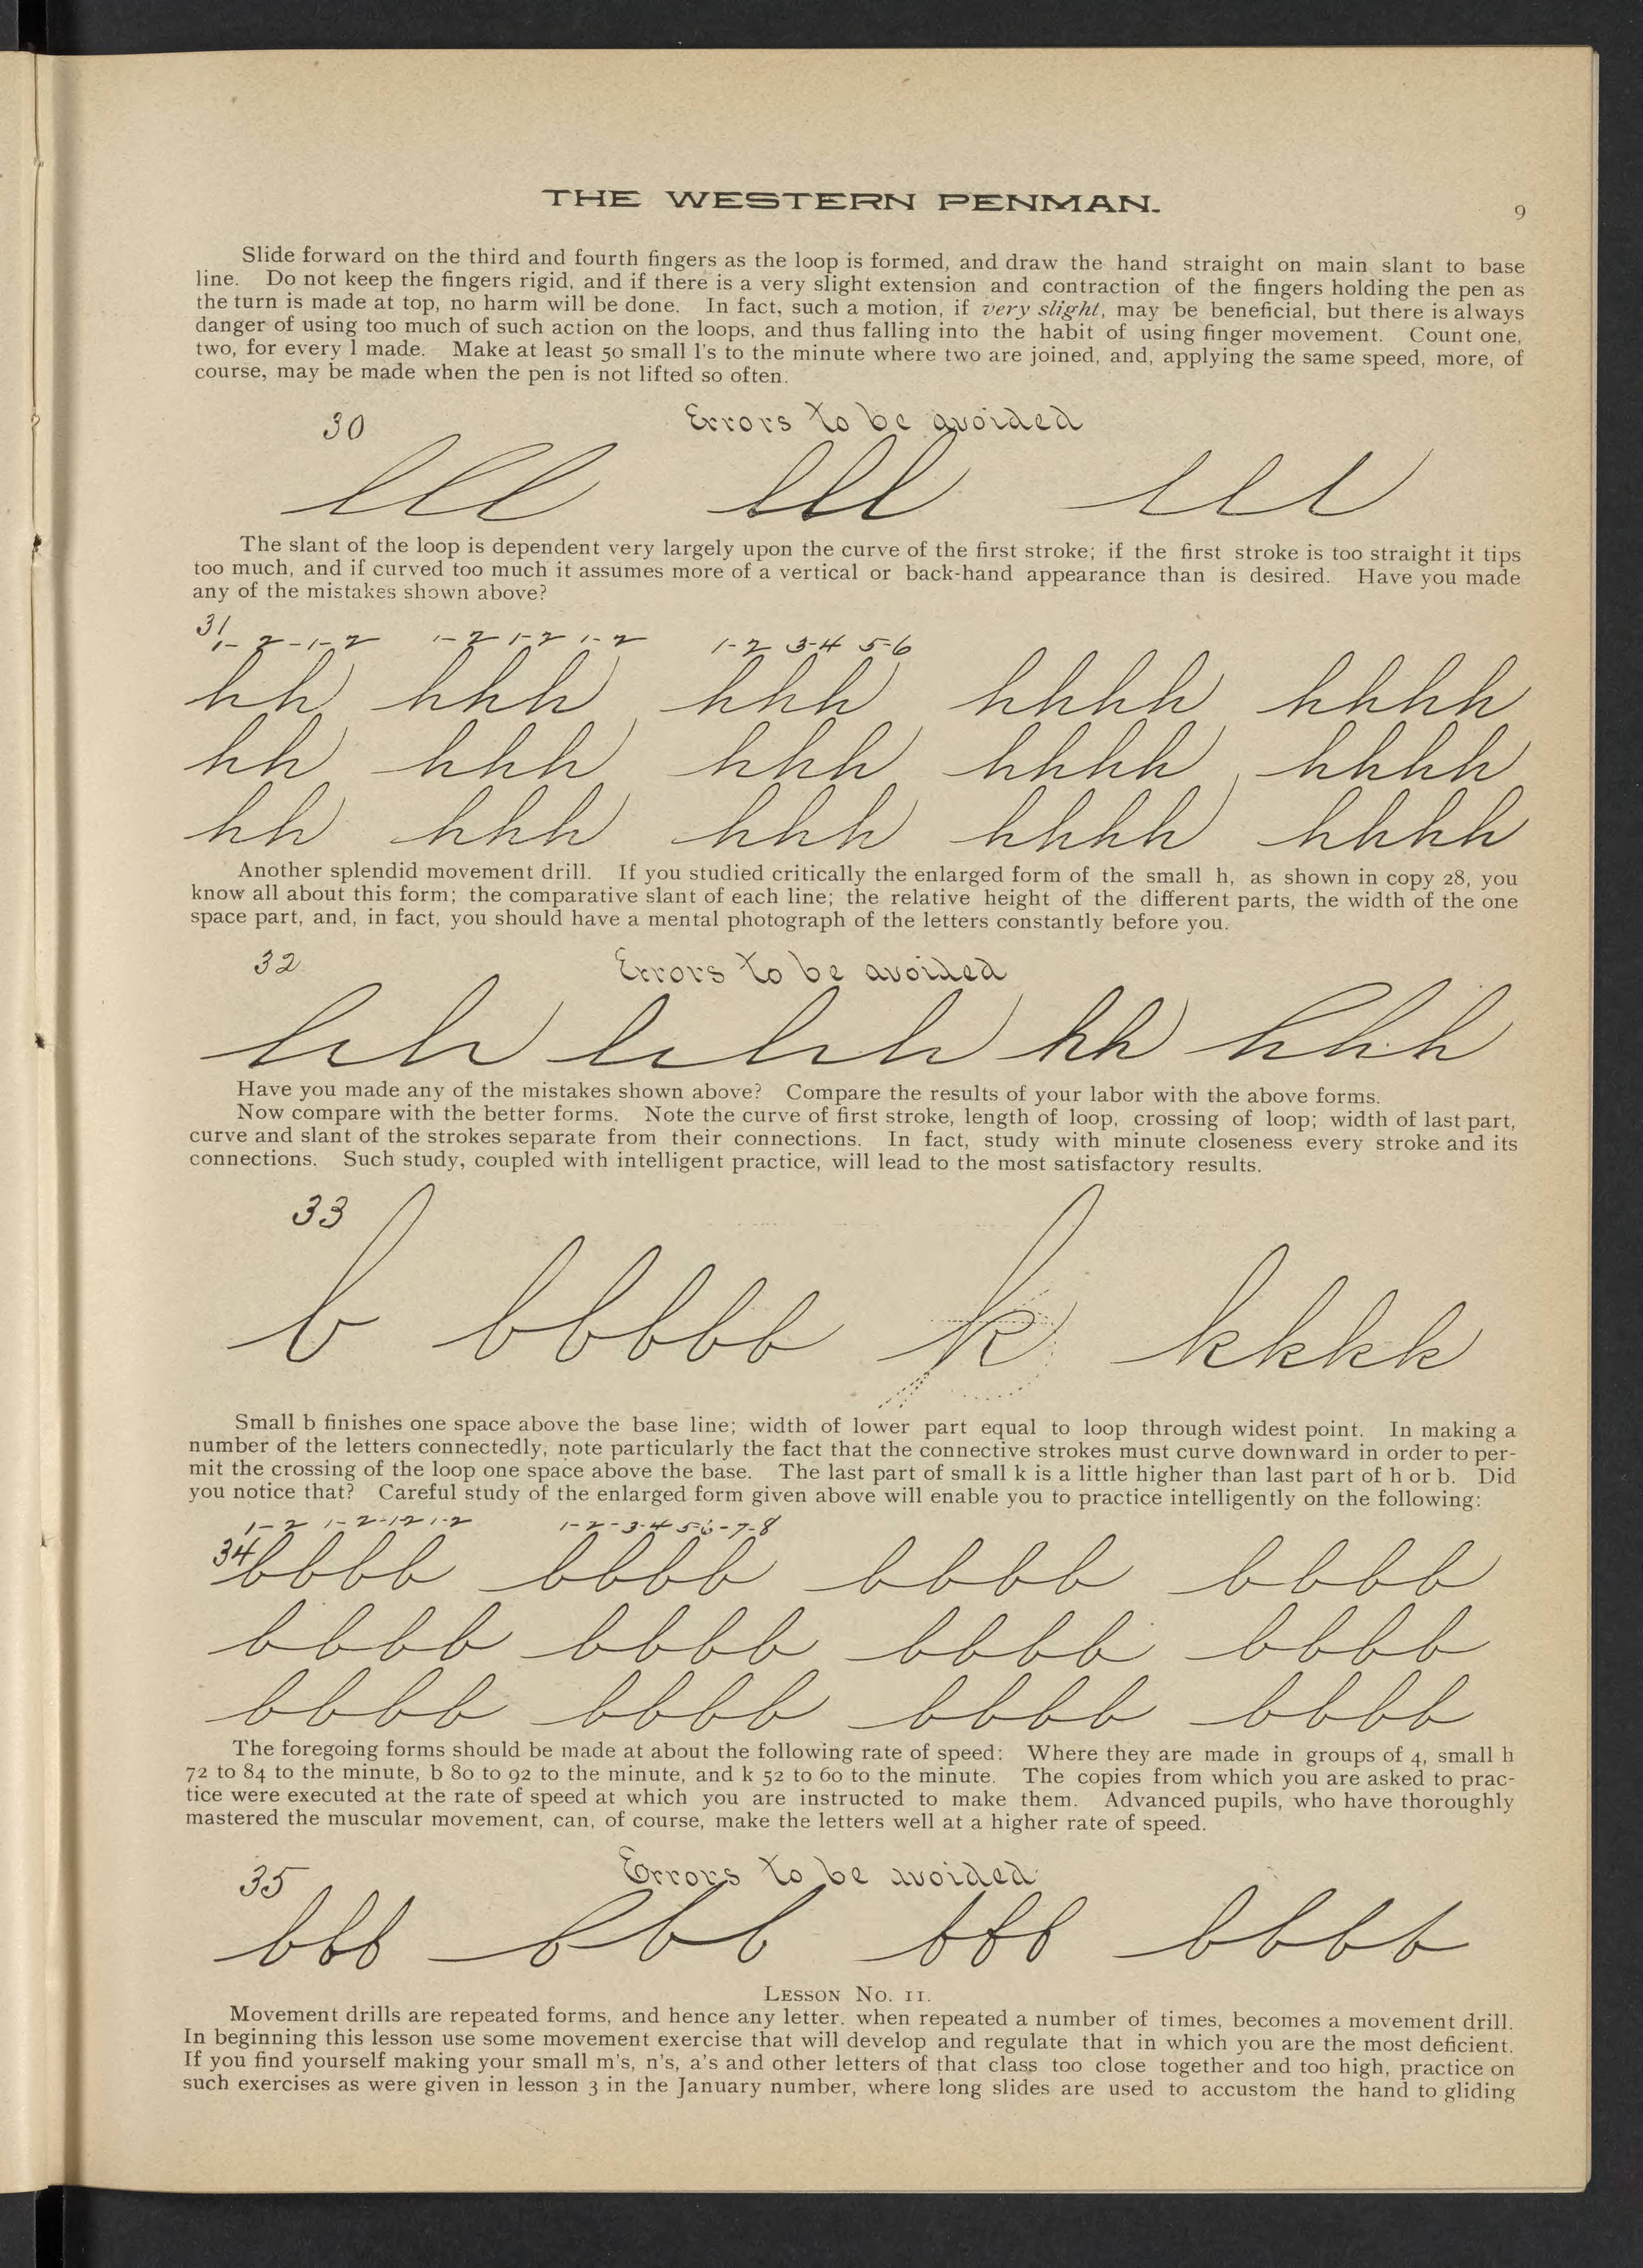 THE WESTERN PENMAN.
9
Slide forward on the third and fourth fingers as the loop is formed, and draw the hand straight on main slant to base
line. Do not keep the fingers rigid, and if there is a very slight extension and contraction of the fingers holding the pen as
the turn is made at top, no harm will be done. In fact, such a motion, if very slight, may be beneficial, but there is always
danger of using too much of such action on the loops, and thus falling into the habit of using finger movement. Count one,
two, for every l made. Make at least 50 small l's to the minute where two are joined, and, applying the same speed, more, of
course, may be made when the pen is not lifted so often.
30 Errors to be avoided
lll lll lll
The slant of the loop is dependent very largely upon the curve of the first stroke; if the first stroke is too straight it tips
too much, and if curved too much it assumes more of a vertical or back-hand appearance than is desired. Have you made
any of the mistakes shown above?
31
1-2-1-2 1-2 1-2 1-2 1-2 3-4 5-6
hh hhh hhh hhhh hhhh
hh hhh hhh hhhh hhhh
hh hhh hhh hhhh hhhh
Another splendid movement drill. If you studied critically the enlarged form of the small h, as shown in copy 28, you
know all about this form; the comparative slant of each line; the relative height of the different parts, the width of the one
space part, and, in fact, you should have a mental photograph of the letters constantly before you.
32 Errors to be avoided
hh hhh hh hhh
Have you made any of the mistakes shown above? Compare the results of your labor with the above forms.
Now compare with the better forms. Note the curve of first stroke, length of loop, crossing of loop; width of last part,
curve and slant of the strokes separate from their connections. In fact, study with minute closeness every stroke and its
connections. Such study, coupled with intelligent practice, will lead to the most satisfactory results.
33
b bbbbb k kkkk
Small b finishes one space above the base line; width of lower part equal to loop through widest point. In making a
number of the letters connectedly, note particularly the fact that the connective strokes must curve downward in order to per-
mit the crossing of the loop one space above the base. The last part of small k is a little higher than last part of h or b. Did
you notice that? Careful study of the enlarged form given above will enable you to practice intelligently on the following:
1-2 1-2-1-2 1-2 1-2-3-4 5-6-7-8
34 bbbb bbbb bbbb bbbb
bbbb bbbb bbbb bbbb
bbbb bbbb bbbb bbbb
The foregoing forms should be made at about the following rate of speed: Where they are made in groups of 4, small h
72 to 84 to the minute, b 80 to 92 to the minute, and k 52 to 60 to the minute. The copies from which you are asked to prac-
tice were executed at the rate of speed at which you are instructed to make them. Advanced pupils, who have thoroughly
mastered the muscular movement, can, of course, make the letters well at a higher rate of speed.
35 Errors to be avoided
bbb bbb bbb bbbb
LESSON NO. 11.
Movement drills are repeated forms, and hence any letter, when repeated a number of times, becomes a movement drill.
In beginning this lesson use some movement exercise that will develop and regulate that in which you are the most deficient.
If you find yourself making your small m's, n's, a's and other letters of that class too close together and too high, practice on
such exercises as were given in lesson 3 in the January number, where long slides are used to accustom the hand to gliding